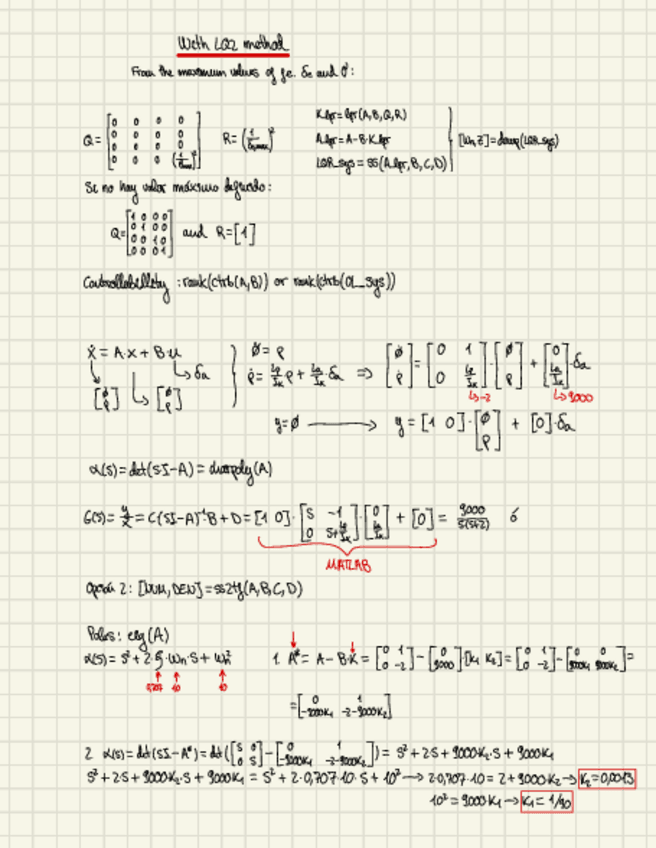 With LQR method
From the maximum values of
Q = [0 0 0 0; 0 0 0 0; 0 0 0 0; 0 0 0 (1/ )²] R = (1/ )²
K_lqr = lqr(A,B,Q,R)
A_lqr = A-B·K_lqr
LQR_sys = ss(A_lqr, B, C, D)
[Wn,Z] = damp(LQR_sys)
Si no hay valor máximo definido:
Q = [1 0 0 0; 0 1 0 0; 0 0 1 0; 0 0 0 1] and R = [1]
Controllability : rank(ctrb(A,B)) or rank(ctrb(OL_sys))
ẋ = A·x + B·u
δa
[φ; p] [φ; p]
φ̇ = p
ṗ = Lp/Ix p + La/Ix · δa ⇒ [φ̇; ṗ] = [0 1; 0 Lp/Ix]·[φ; p] + [0; La/Ix]·δa
↳-2 ↳9000
y = φ → y = [1 0]·[φ; p] + [0]·δa
α(s) = det(sI-A) = charpoly(A)
G(s) = y/x = C(sI-A)⁻¹·B + D = [1 0]·[s -1; 0 s+Lp/Ix]·[0; La/Ix] + [0] = 9000/s(s+2) ó
MATLAB
opción 2: [NUM, DEN] = ss2tf(A,B,C,D)
Poles: eig(A)
α(s) = s² + 2·ξ·Wn·s + Wn²
0,707 10 10
1. A* = A - B·K = [0 1; 0 -2] - [0; 9000]·[K1 K2] = [0 1; 0 -2] - [0 0; 9000K1 9000K2] =
= [0 1; -9000K1 -2-9000K2]
2 α(s) = det(sI-A*) = det([s 0; 0 s] - [0 1; -9000K1 -2-9000K2]) = s² + 2s + 9000K2·s + 9000K1
s² + 2s + 9000K2·s + 9000K1 = s² + 2·0,707·10·s + 10² → 2·0,707·10 = 2 + 9000·K2 → K2 = 0,0013
10² = 9000·K1 → K1 = 1/90